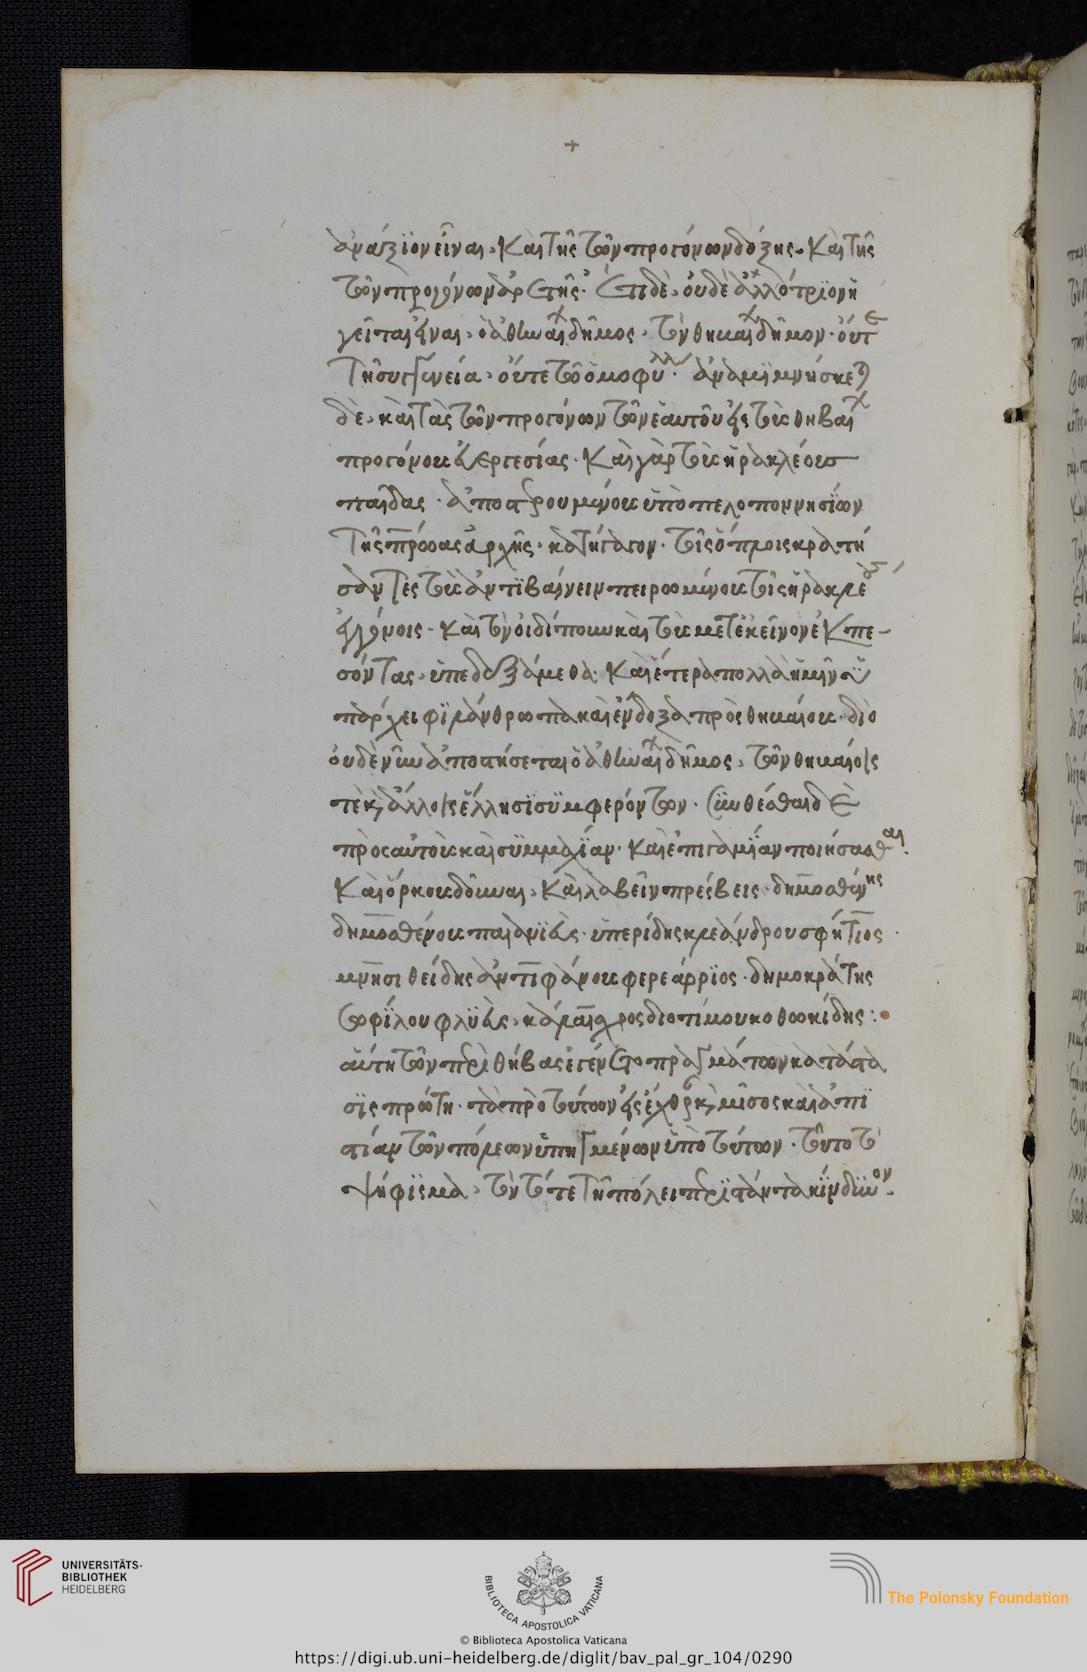 +
ἀνάξιον εἶναι. καὶ τῆς τῶν προγόνων δόξης. καὶ τῆς
τῶν προγόνων ἀρετῆς. ἔτι δὲ, οὐδὲ ἀλλότριον ἡ
γεῖται εἶναι, ὁ ἀθηναίων δῆμος. τὸν θηβαίων δῆμον. οὔτε
τῇ συγγενεία. οὔτε τῷ ὁμοφύλῳ. ἀναμιμνήσκεται
δὲ, καὶ τὰς τῶν προγόνων τῶν ἑαυτοῦ εἰς τοὺς θηβαίων
προγόνους εὐεργεσίας. καὶ γὰρ τοὺς ἡρακλέους
παῖδας. ἀποστερουμένους ὑπὸ πελοποννησίων
τῆς πατρώας ἀρχῆς. κατήγαγον. τοῖς ὅπλοις κρατή
σαντες τοὺς ἀντιβαίνειν πειρωμένους τοῖς ἡρακλέους
ἐγγόνοις. καὶ τὸν οἰδίπουν καὶ τοὺς μετ' ἐκεῖνον ἐκπε-
σόντας. ὑπεδεξάμεθα. καὶ ἕτερα πολλὰ ἡμῖν ὑ
πάρχει φιλάνθρωπα καὶ ἔνδοξα πρὸς θηβαίους. διὸ
οὐδὲ νῦν ἀποστήσεται ὁ ἀθηναίων δῆμος, τῶν θηβαίοις
τε καὶ ἄλλοις ἕλλησι συμφερόντων. συνθέσθαι δὲ
πρὸς αὐτοὺς καὶ συμμαχίαν. καὶ ἐπιγαμίαν ποιήσασθαι.
καὶ ὅρκους δοῦναι. καὶ λαβεῖν πρέσβεις. δημοσθένης
δημοσθένους παιανιεὺς. ὑπερίδης κλεάνδρου σφήττιος.
μνησιθείδης ἀντιφάνους φρεάρριος. δημοκράτης
σωφίλου φλυεὺς. κάλλαισχρος διοτίμου κοθωκίδης :
αὕτη τῶν περὶ θήβας ἐγένετο πραγμάτων κατάστα
σις πρώτη. τὰ πρὸ τούτων εἰς ἔχθραν καὶ μῖσος καὶ ἀπι
στίαν τῶν πόλεων ὑπηγμένων ὑπὸ τούτων. τοῦτο τὸ
ψήφισμα. τὸν τότε τῇ πόλει περιστάντα κίνδυνον.
UNIVERSITÄTS-
BIBLIOTHEK
HEIDELBERG
BIBLIOTECA APOSTOLICA VATICANA
The Polonsky Foundation
© Biblioteca Apostolica Vaticana
https://digi.ub.uni-heidelberg.de/diglit/bav_pal_gr_104/0290